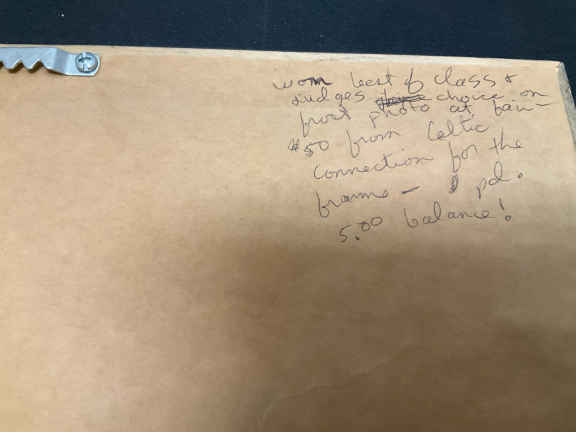 won best of class &
Judges choice on
front photo at fair -
$50 from Celtic
Connection for the
frame - I pd.
5.00 balance!